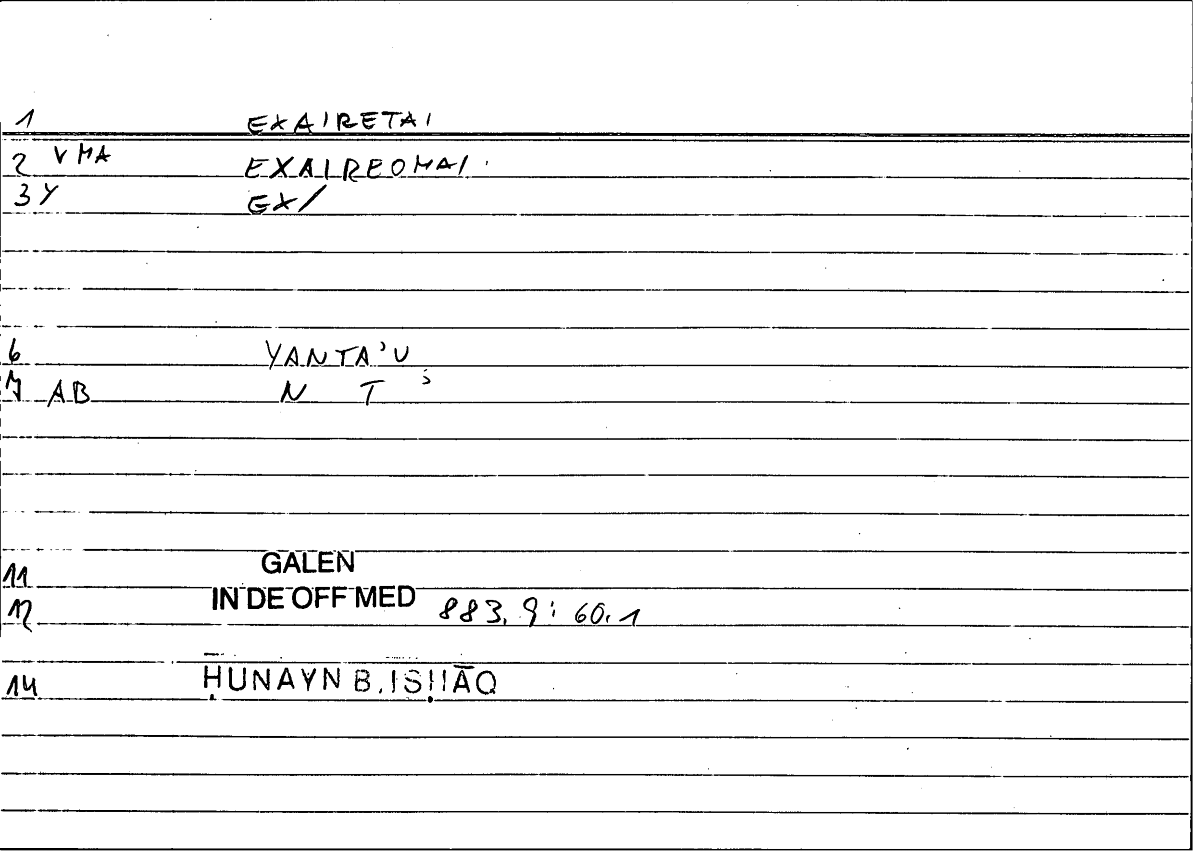 1 EXAIRETAI
2 VMA EXAIREOMAI
3 Y EX/
6 YANTA'U
7 AB N T '
11 GALEN
12 IN DE OFF MED 883.9: 60.1
14 ḤUNAYN B. ISḤĀQ